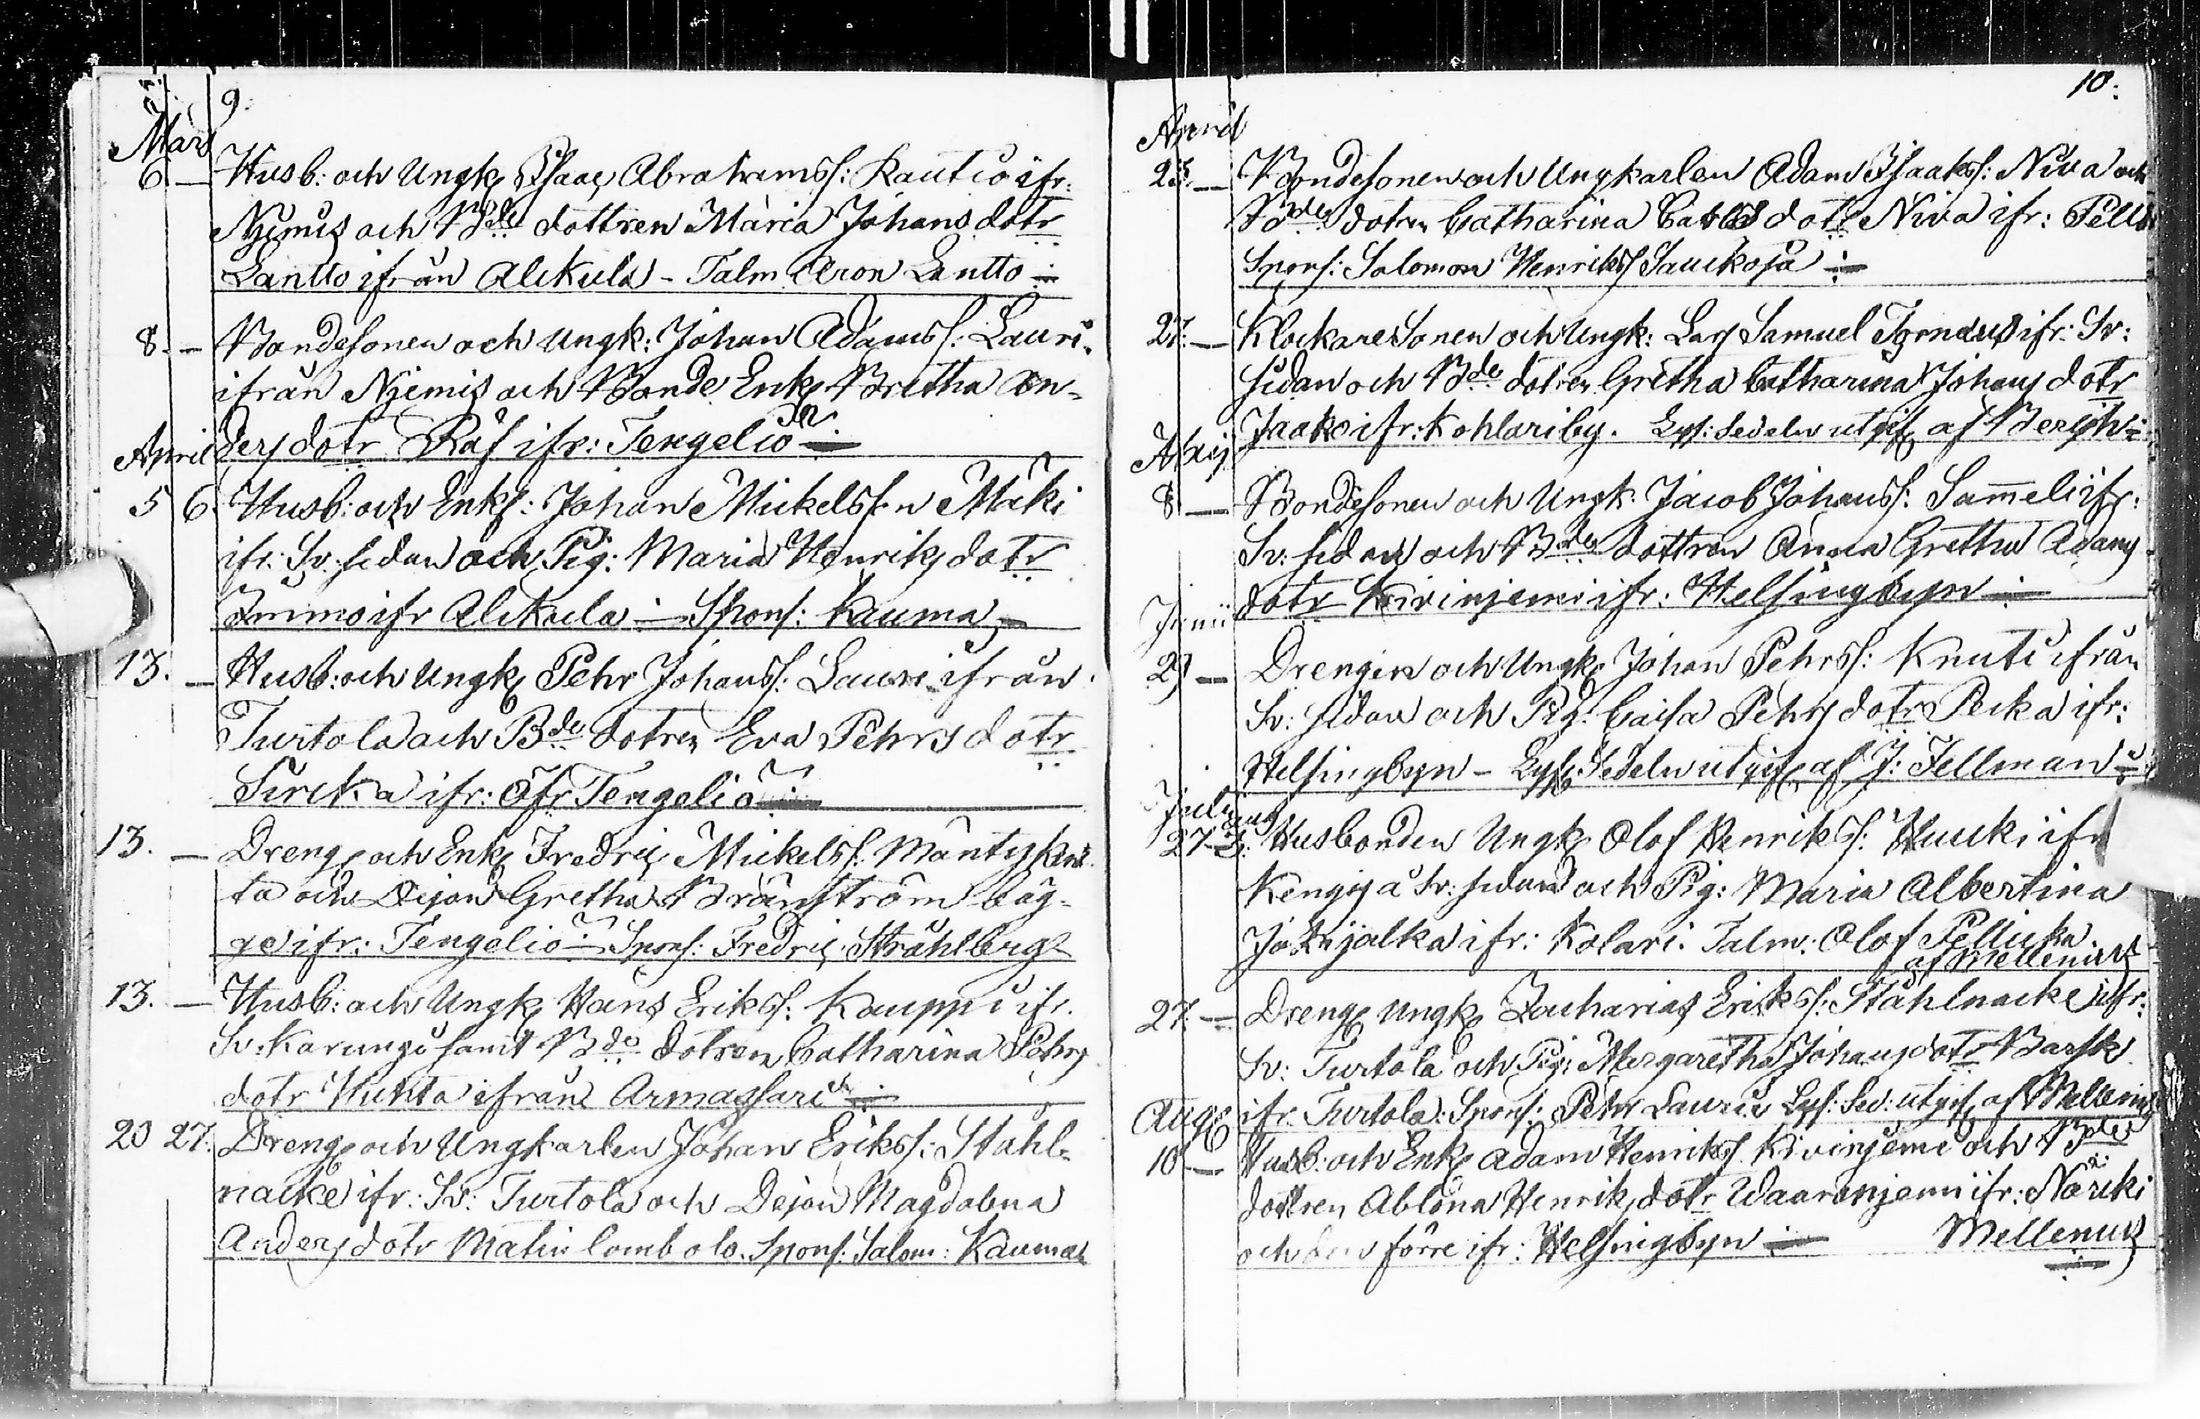 9.
Mars
6. — Husb: och Ungk. Isaac Abrahamss: Kautio ifr:
Njemis och Bde dottren Maria Johans dotr
Lantto ifrån Alkula - Talm Aron Lantto
8. — Bondesonen och Ungk: Johan Adamss: Lauri
ifrån Njemis och Bonde Enk. Bretha An-
ders dotr Räf ifr: Tengeliö
April
5 6. Husb: och Enkl: Johan Mickelsson Mäki
ifr. Sv. sidan och Pig: Maria Henriks dotr
Immo ifr Alkula — Spons: Kauma
13. — Husb: och Ungk Pehr Johanss: Lauri ifrån
Turtola och Bde dotren Eva Pehrs dotr
Sirkka ifr: Öfr Tengeliö
13. — Dreng och Enk Fredric Mickelss: Mäntyke
ta och Dejan Gretha Bränström
ge ifr: Tengeliö Spons: Fredric Stråhlberg
13. — Husb: och Ungk Hans Erikss: Kauppi ifr.
Sv: Karungi samt Bde dotren Catharina Pehrs
dotr Huhta ifrån Armassari
20 27. Dreng och Ungkarlen Johan Erikss: Stahl-
nacke ifr: Sv: Turtola och Dejan Magdalena
Anders dotr Matin lombolo. Spons: Salom: Kauma
10.
April
25. — Bondesonen och Ungkarlen Adam Isaakss: Niva och
Bde dotren Catharina Carls dotr Niva ifr: Pello
Spons: Salomon Henrikss Saukoja
27. — Klockare Sonen och Ungk: Lars Samuel Tornæus ifr: Sv:
sidan och Bde dotren Gretha Catharina Johans dotr
Jaako ifr: Kohlariby. Lys: sedeln utgif af Bergh
Maij
8 — Bondesonen och Ungk. Jacob Johanss: Sammeli ifr:
Sv: sidan och Bde dottren Anna Gretha Adams
dotr Kivinjemi ifr: Helsingbyn
Junii
29 — Drengen och Ungk. Johan Pehrss: Knuti ifrån
Sv: sidan och Pig: Caisa Pehrs dotr Pecka ifr:
Helsingbyn - Lys: Sedeln utgif af J: Fellman
Julius
27 3. Husbonden Ungk Olof Henrikss: Huuki ifr
Kengis å Sv: sidan och Pig: Maria Albertina
Jokijalka ifr: Kolari. Talm: Olof Pellicka.
af Mellenius
27. — Dreng Ungk Zacharias Erikss: Stahlnacke ifr:
Sv: Turtola och Pig: Margaretha Johans dotr Barsk
ifr. Turtola: Spons: Pehr Lauri Lys: Sed: utgif af Mellenius
Aug
10 — Husb: och Enk Adam Henrikss Kivinjemi och Bde
dottren Ablona Henriks dotr Waaranjemi ifr: Närki
och den förre ifr: Helsingbyn — Mellenius